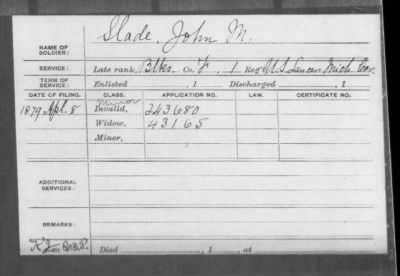 Slade, John M.
NAME OF SOLDIER:
SERVICE: Late rank, Blks. Co. F, 1 Reg't U.S. Lancers Mich. Cav.
TERM OF SERVICE: Enlisted , 1 Discharged , 1
DATE OF FILING. CLASS. APPLICATION NO. LAW. CERTIFICATE NO.
Minor
1879 Apl. 8 Invalid, 243680
Widow, 43165
Minor,
ADDITIONAL SERVICES:
REMARKS:
Died , 1 , at